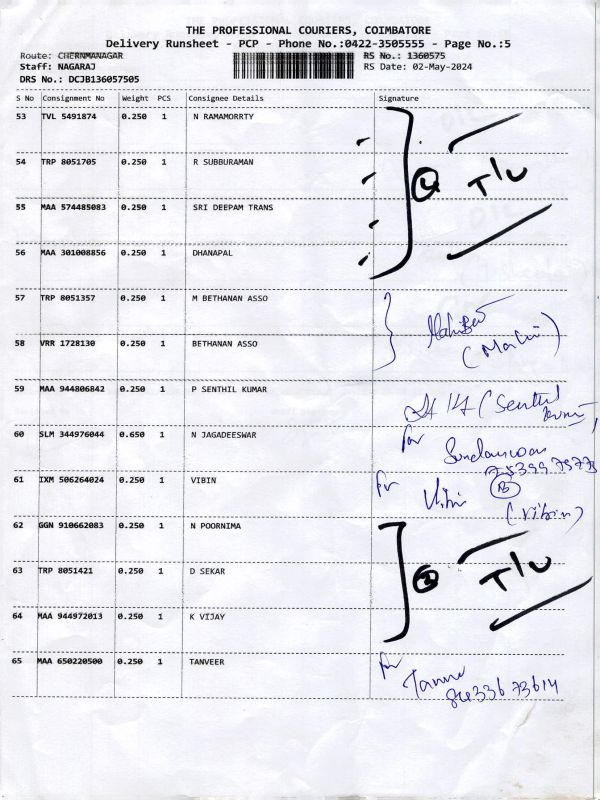 THE PROFESSIONAL COURIERS, COIMBATORE
Delivery Runsheet - PCP - Phone No.:0422-3505555 - Page No.:5
Route: CHERNMANAGAR RS No.: 1360575
Staff: NAGARAJ RS Date: 02-May-2024
DRS No.: DCJB136057505
S No Consignment No Weight PCS Consignee Details Signature
53 TVL 5491874 0.250 1 N RAMAMORRTY
54 TRP 8051705 0.250 1 R SUBBURAMAN
4 T/L
55 MAA 574485083 0.250 1 SRI DEEPAM TRANS
56 MAA 301008856 0.250 1 DHANAPAL
57 TRP 8051357 0.250 1 M BETHANAN ASSO
58 VRR 1728130 0.250 1 BETHANAN ASSO
59 MAA 944806842 0.250 1 P SENTHIL KUMAR
(Senthil
60 SLM 344976044 0.650 1 N JAGADEESWAR
for
61 IXM 506264024 0.250 1 VIBIN
for Vibin
(Vibin)
62 GGN 910662083 0.250 1 N POORNIMA
63 TRP 8051421 0.250 1 D SEKAR
3 T/L
64 MAA 944972013 0.250 1 K VIJAY
65 MAA 650220500 0.250 1 TANVEER
for